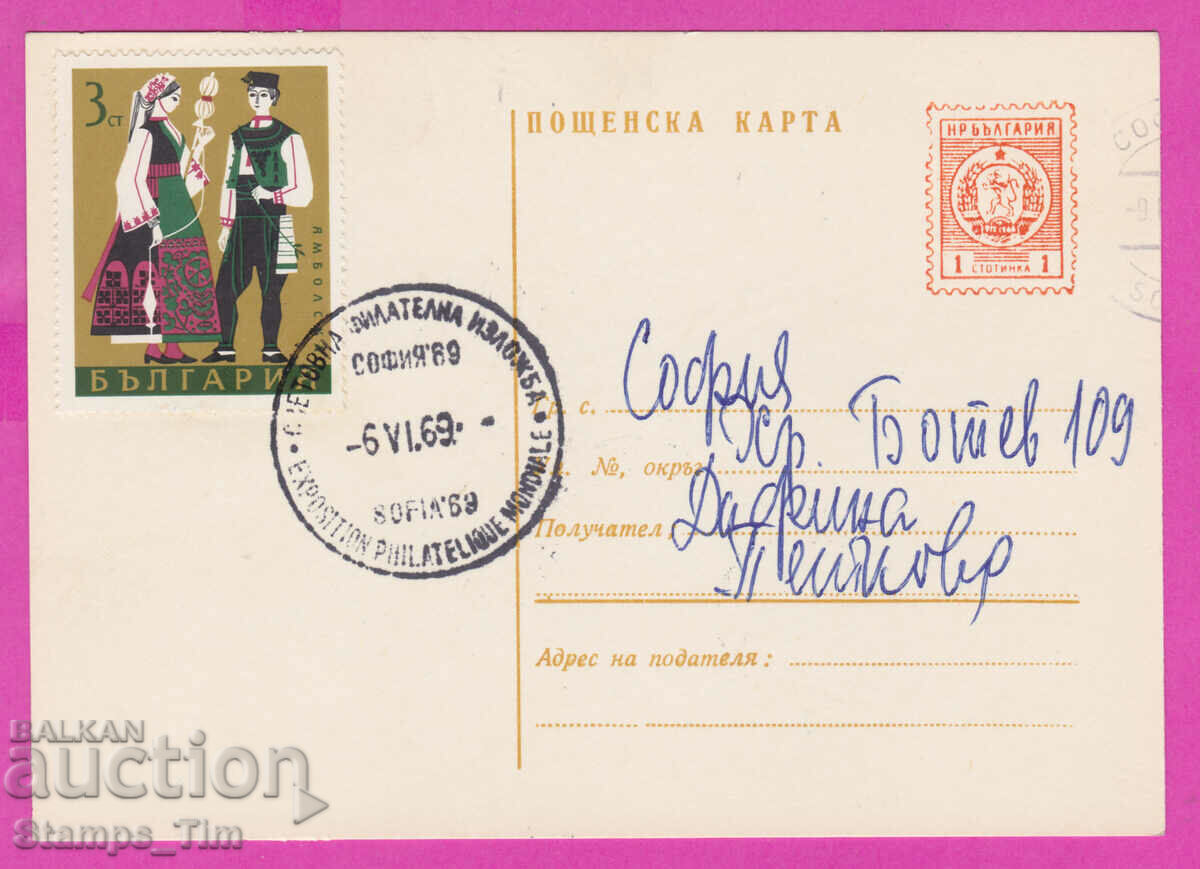 3 ст.
ЯМБОЛС
БЪЛГАРИ
СВЕТОВНА ФИЛАТЕЛНА ИЗЛОЖБА
СОФИЯ'69
-6 VI.69.-
SOFIA'69
EXPOSITION PHILATELIQUE MONDIALE
ПОЩЕНСКА КАРТА
НРБЪЛГАРИЯ
1 СТОТИНКА 1
София
Гр. с.
Хр. Ботев 109
№, окръг
Дафкина
Получател
Пенкова
Адрес на подателя:
BALKAN
auction
Stamps_Tim